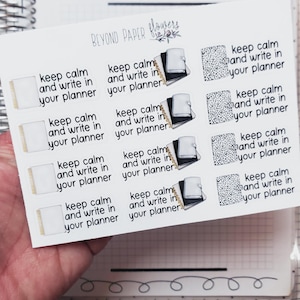 BEYOND PAPER flowers
keep calm
and write in
your planner
keep calm
and write in
your planner
keep calm
and write in
your planner
keep calm
and write in
your planner
keep calm
and write in
your planner
keep calm
and write in
your planner
keep calm
and write in
your planner
keep calm
and write in
your planner
keep calm
and write in
your planner
keep calm
and write in
your planner
keep calm
and write in
your planner
keep calm
and write in
your planner